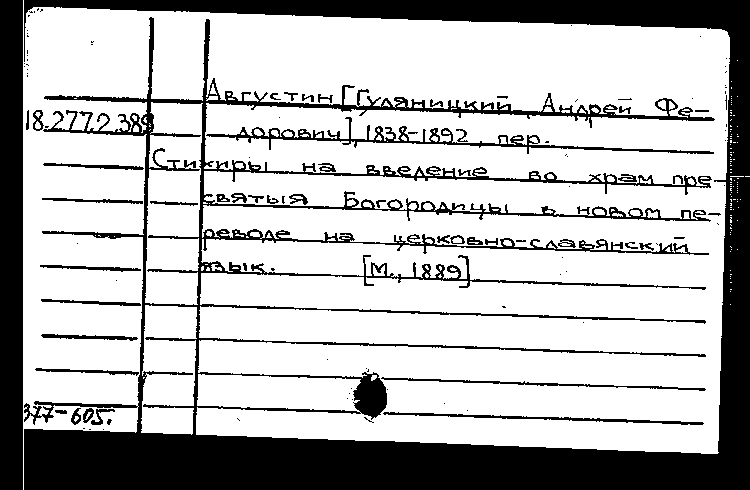 Августин [Гуляницкий, Андрей Фе-
18.277.2.389
дорович], 1838-1892, пер.
Стихиры на введение во храм пре-
святыя Богородицы в новом пе-
реводе на церковно-славянский
язык. [М., 1889]
377-605.